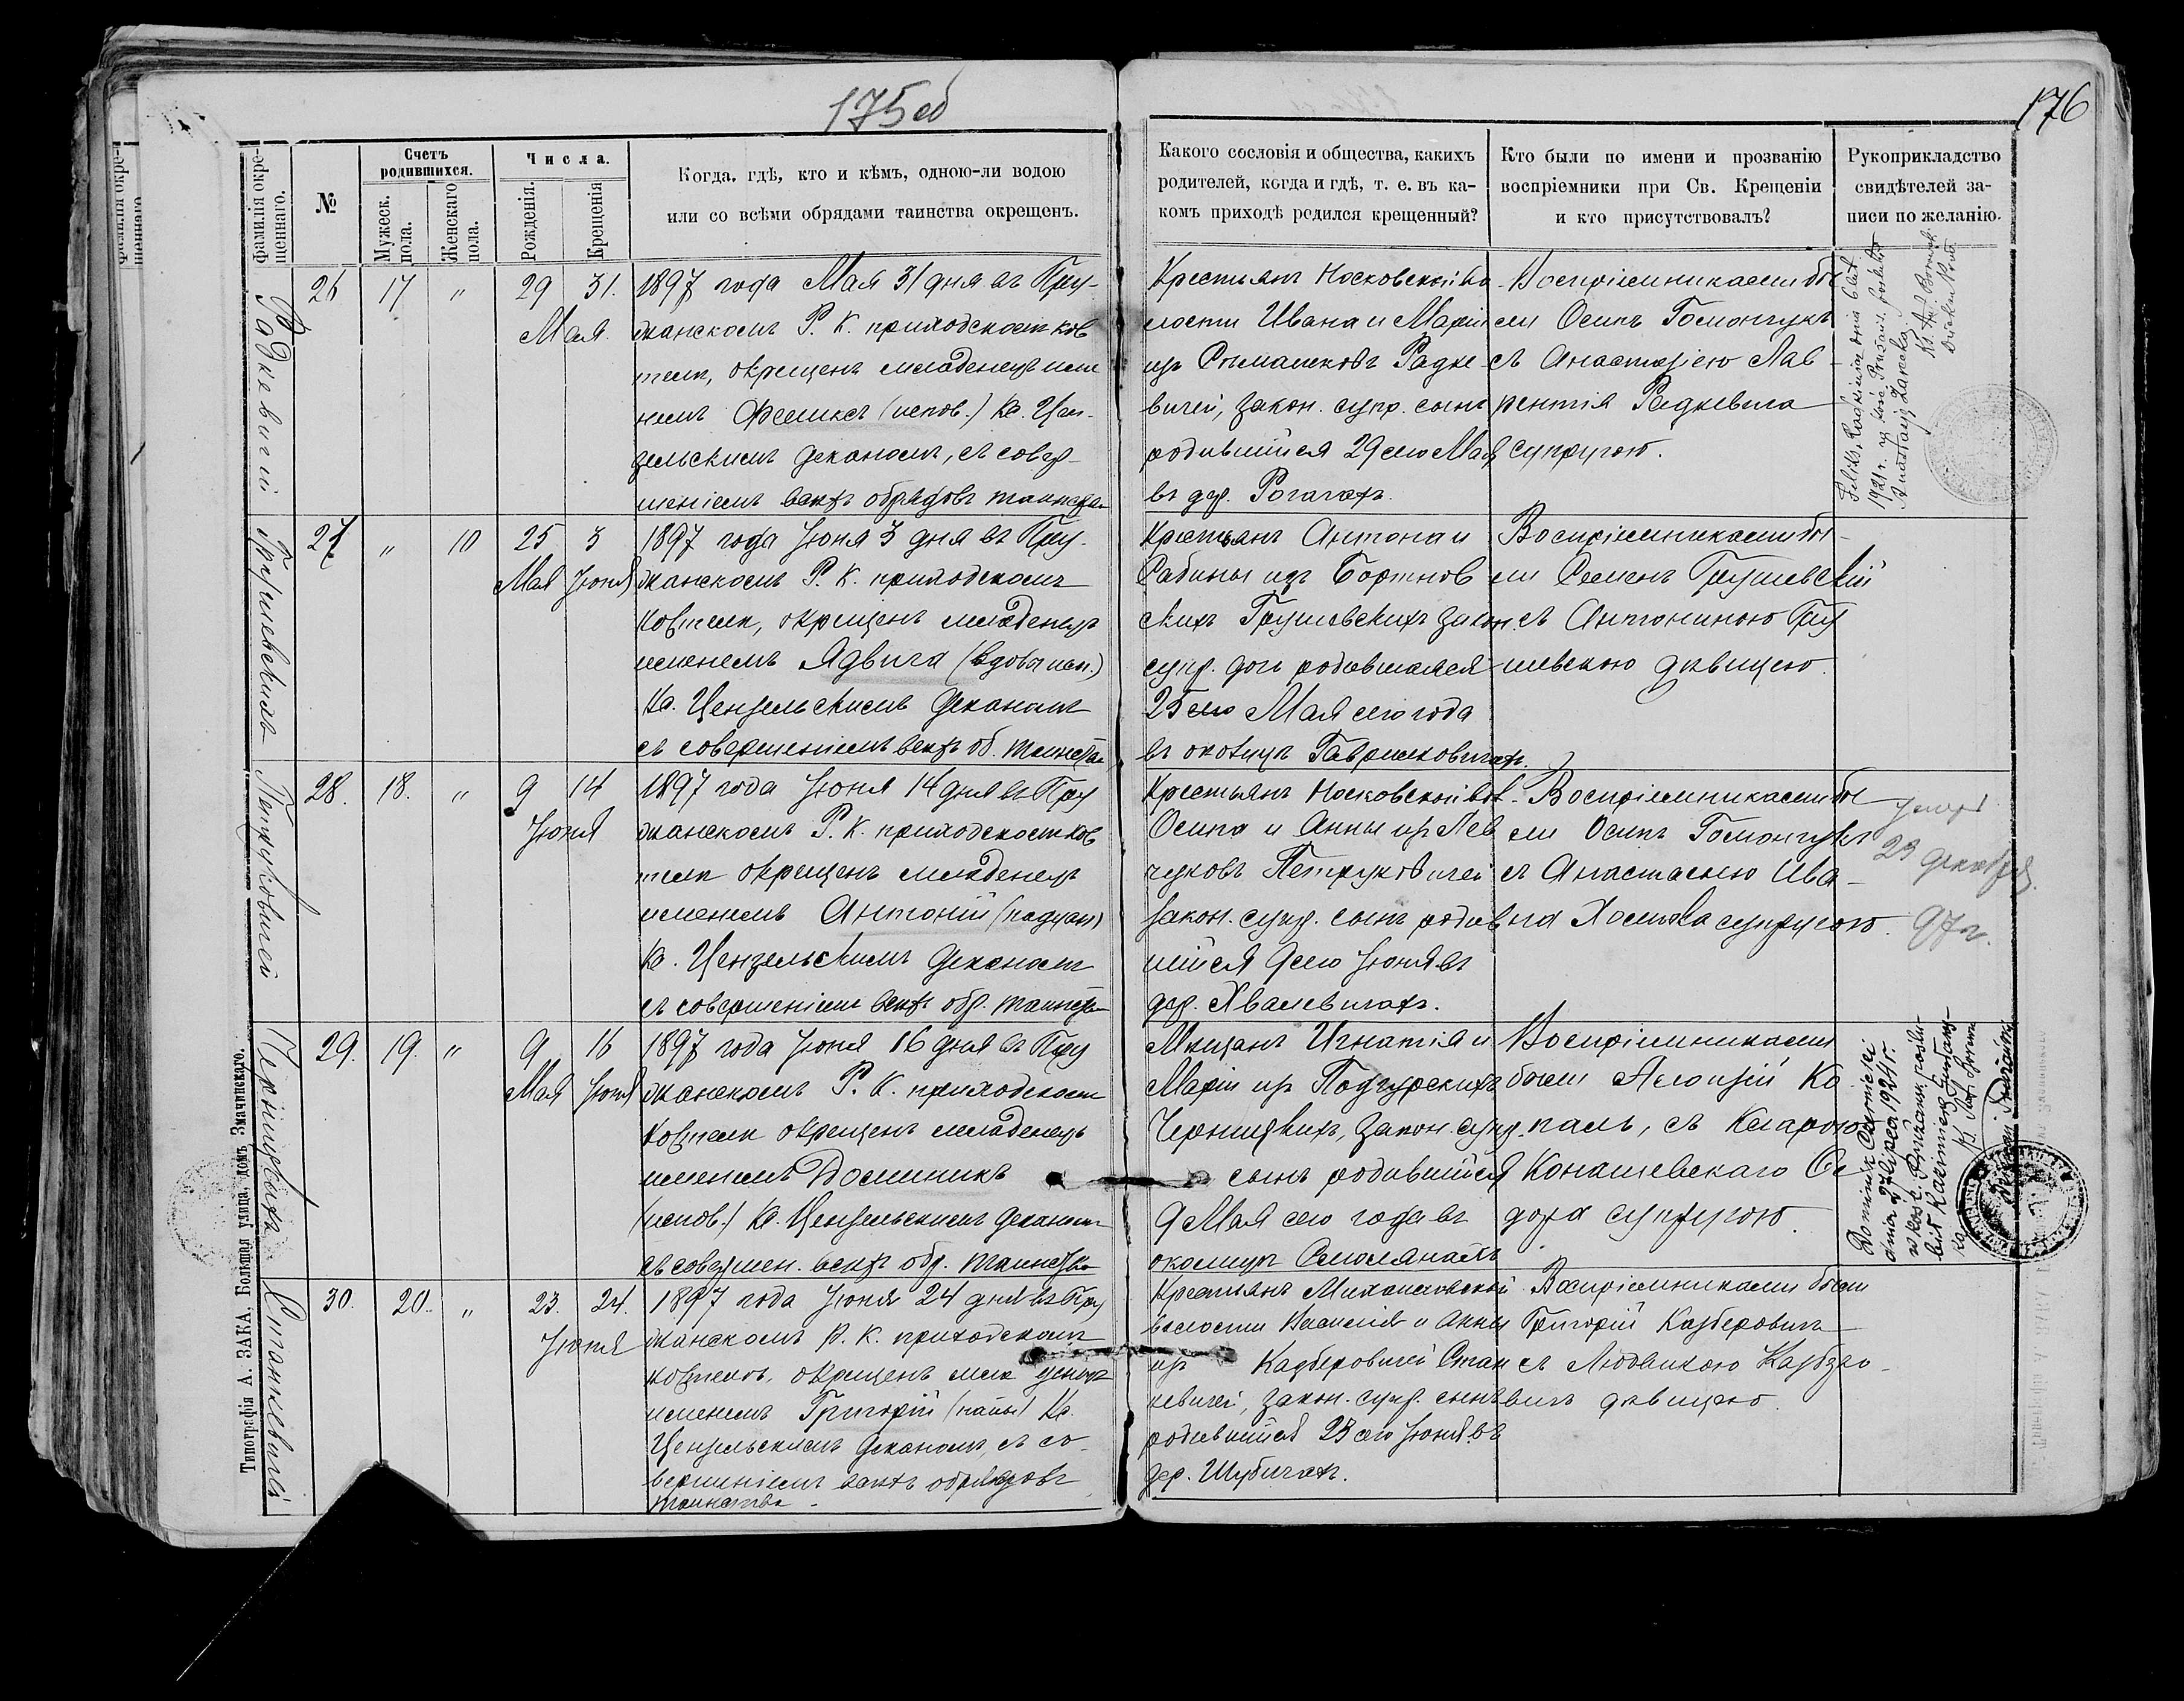 175об
176
Фамилія окре-
щеннаго.
№
Счетъ
родившихся.
Мужеск.
пола.
Женскаго
пола.
Числа.
Рожденія.
Крещенія
Когда, гдѣ, кто и кѣмъ, одною-ли водою
или со всѣми обрядами таинства окрещенъ.
Какого сословія и общества, какихъ
родителей, когда и гдѣ, т. е. въ ка-
комъ приходѣ родился крещенный?
Кто были по имени и прозванію
воспріемники при Св. Крещеніи
и кто присутствовалъ?
Рукоприкладство
свидѣтелей за-
писи по желанію.
Радкевичій
26 17 " 29 31.
Мая.
1897 года Мая 31 дня въ Пру-
жанскомъ Р. К. приходскомъ кос
телѣ, окрещенъ младенецъ име
немъ Феликсъ (испов.) Кс. Цен-
зельскимъ деканомъ, съ совер-
шеніемъ всѣхъ обрядовъ таинства
Крестьянъ Носковской во-
лости Ивана и Маріи
изъ Романюковъ Радке
вичей, закон. супр. сынъ
родившійся 29 сего Мая
въ дер. Рогачахъ.
Воспріемниками бы
ли Осипъ Гомончукъ
съ Анастазіею Лав-
рентія Радкевича
супругою.
Грушевскихъ
27 " 10 25 3
Мая Іюня
1897 года Іюня 3 дня въ Пру-
жанскомъ Р. К. приходскомъ
костелѣ, окрещенъ младенецъ
именемъ Ядвига (вдовы исп.)
Кс. Цензельскимъ деканомъ
съ совершеніемъ всѣхъ об. таинства
Крестьянъ Антона и
Сабины изъ Бортнов
скихъ Грушевскихъ закон.
супр. дочь родившаяся
25 сего Мая сего года
въ околицѣ Гавриковичахъ.
Воспріемниками бы-
ли Семенъ Грушевскій
съ Антониною Гру
шевскою дѣвицею.
Петруковичей
28. 18. " 9 14
Іюня
1897 года Іюня 14 дня въ Пру
жанскомъ Р. К. приходскомъ кос
телѣ окрещенъ младенецъ
именемъ Антоній (падуан)
Кс. Цензельскимъ деканомъ
съ совершеніемъ всѣхъ обр. таинства
Крестьянъ Носковской вол.
Осипа и Анны изъ Лев
чуковъ Петруковичей
закон. супр. сынъ родив
шійся 9 сего Іюня въ
дер. Хвалевичахъ.
Воспріемниками бы
ли Осипъ Гомончукъ
съ Анастасіею Ива-
на Хомика супругою.
умеръ
23 декабря.
97 г.
Черницкихъ
29. 19. " 9 16
Мая Іюня
1897 года Іюня 16 дня въ Пру
жанскомъ Р. К. приходскомъ
костелѣ окрещенъ младенецъ
именемъ Доминикъ
(испов.) Кс. Цензельскимъ деканомъ
съ совершен. всѣхъ обр. таинства
Мѣщанъ Игнатія и
Маріи изъ Подгурскихъ
Черницкихъ, закон. супр.
сынъ родившійся
9 Мая сего года въ
околицѣ Смолянахъ
Воспріемниками
были Алоизій Ко
паль, съ Кларою
Конашевскаго Ѳе
дора супругою.
Dominik Czernicki
dnia 27 lipca 1924 r.
Станкевичей
30. 20. " 23. 24.
Іюня
1897 года Іюня 24 дня въ Пру
жанскомъ Р. К. приходскомъ
костелѣ, окрещенъ мла денецъ
именемъ Григорій (папы) Кс.
Цензельскимъ деканомъ, съ со-
вершеніемъ всѣхъ обрядовъ
таинства
Крестьянъ Михайловской
волости Василія и Анны
изъ Казберовичей Стан
кевичей, закон. супр. сынъ
родившійся 23 сего Іюня въ
дер. Шубичахъ.
Воспріемниками были
Григорій Казберовичъ
съ Людвикою Казберо-
вичъ дѣвицею.
Типографія А. ЗАКА. Большая улица, домъ Значинскаго.